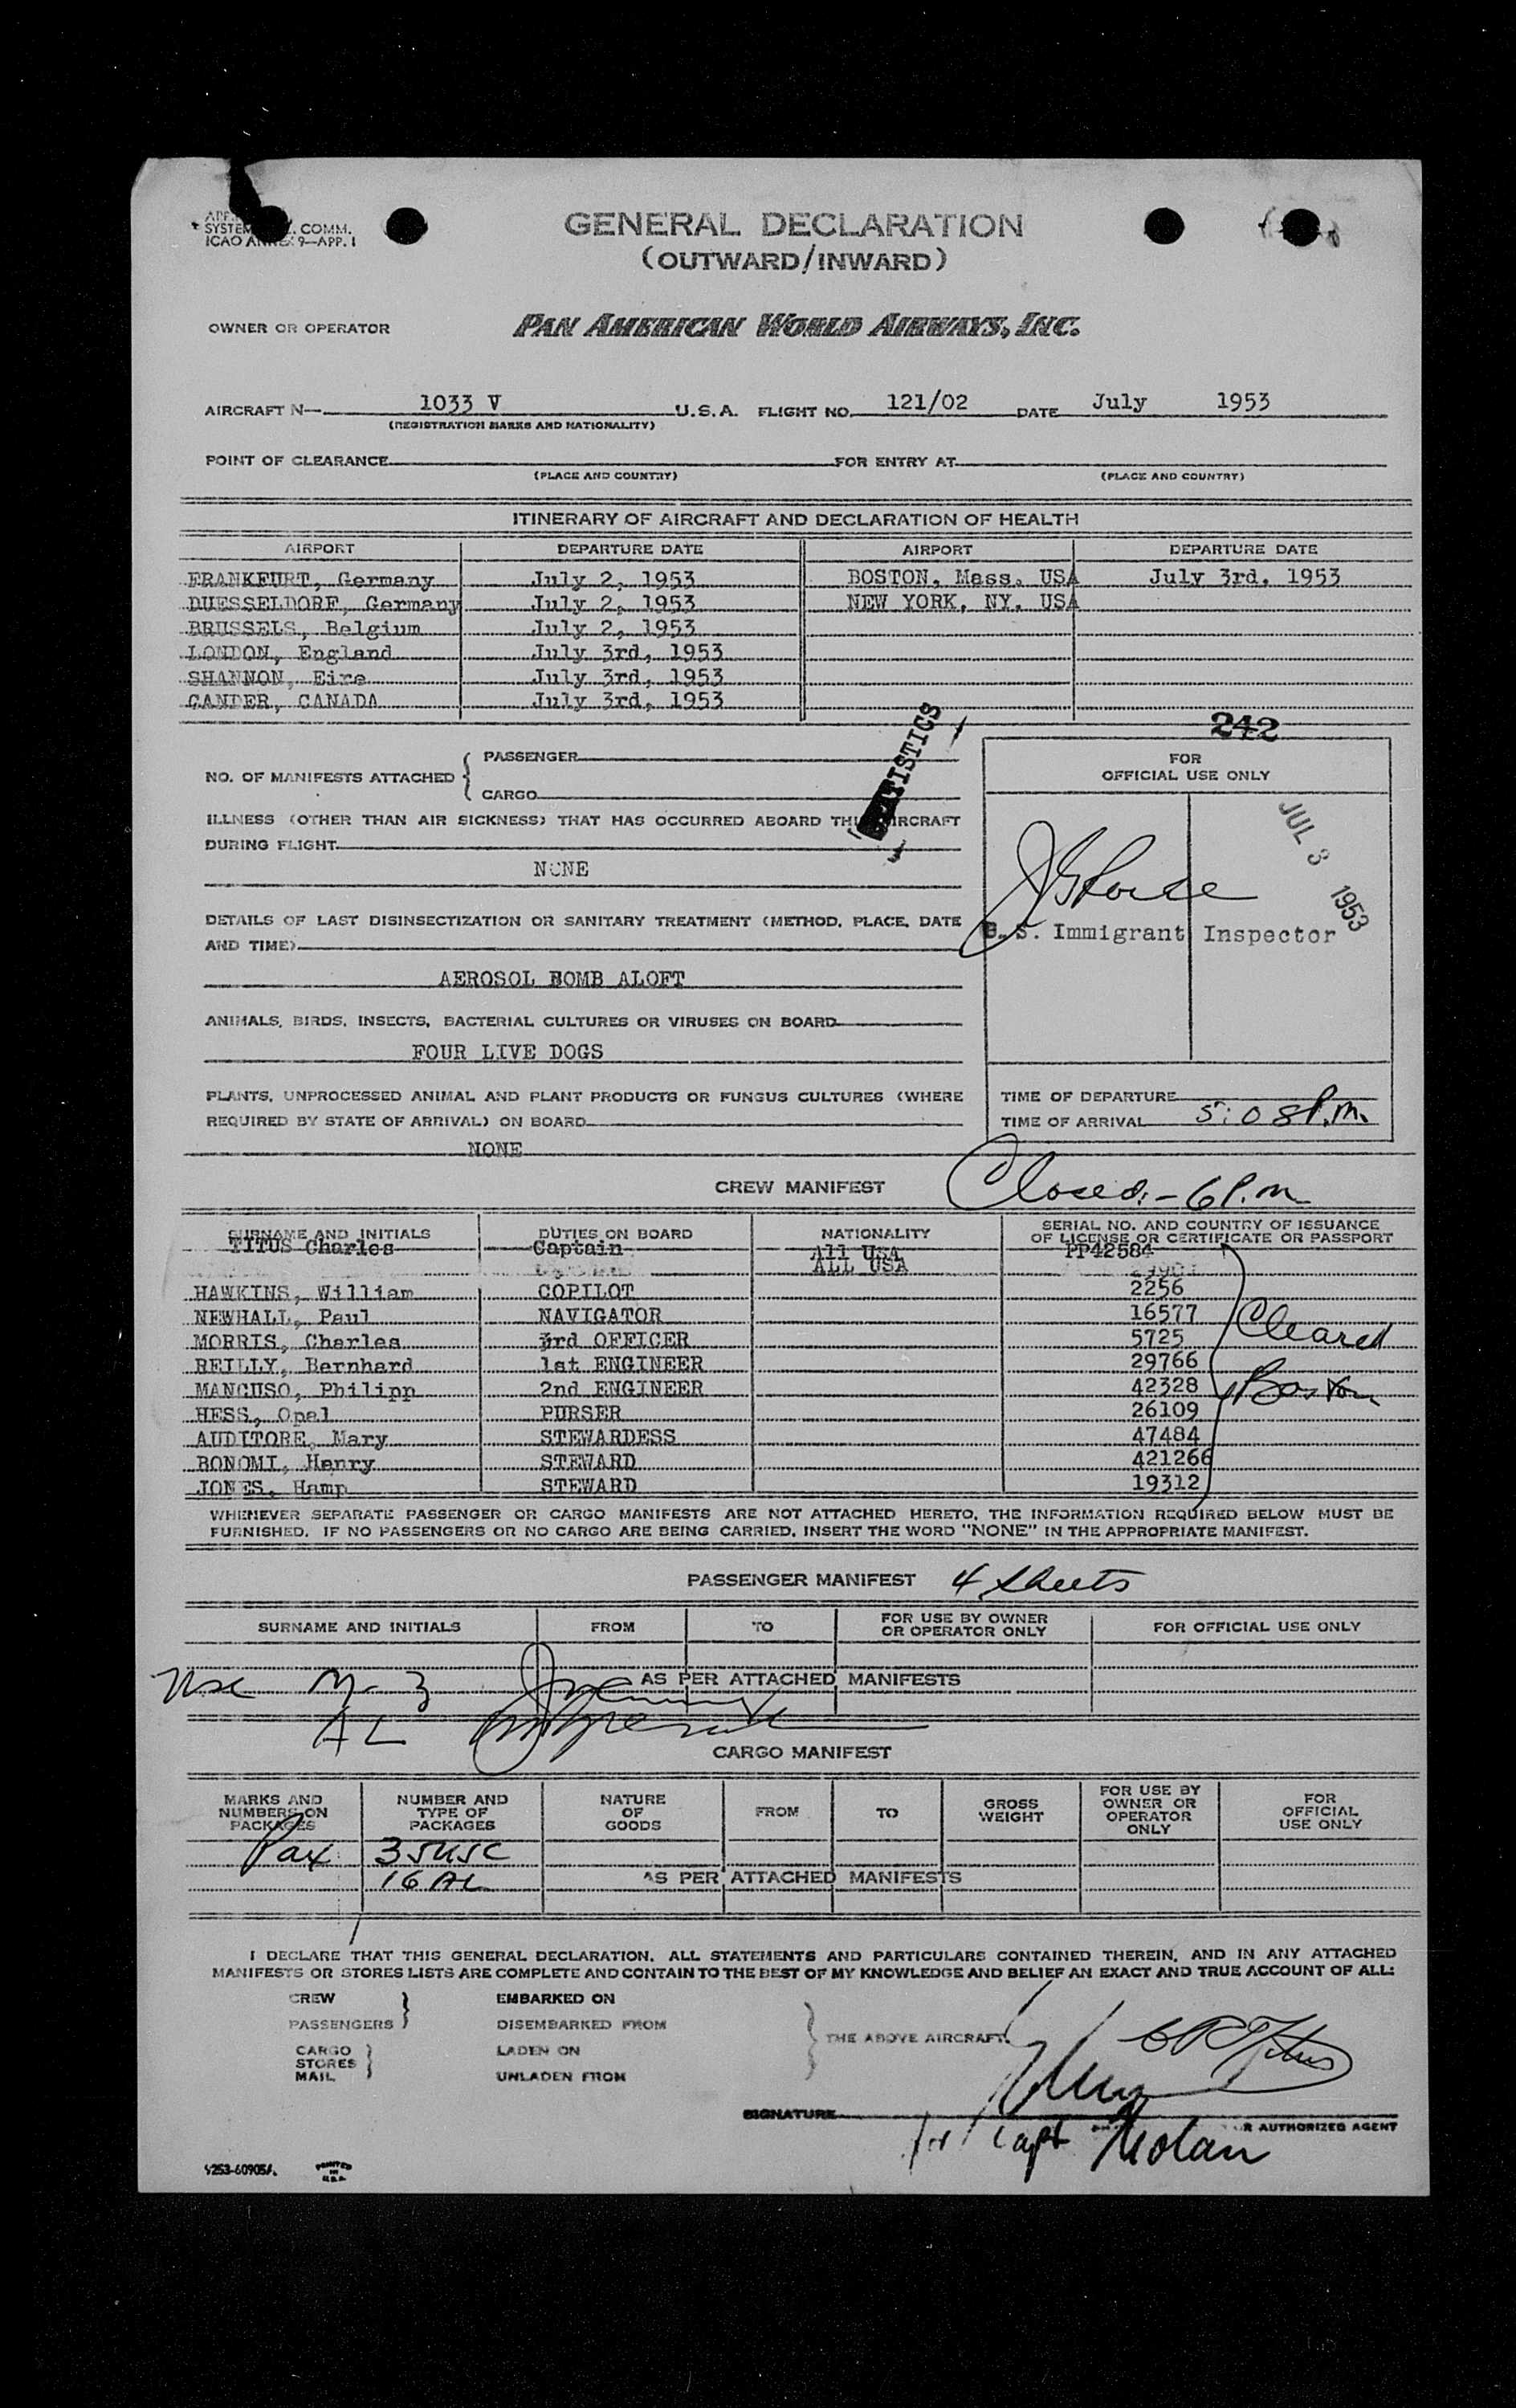 SYSTEM COMM.
ICAO ANNEX 9—APP. 1
GENERAL DECLARATION
(OUTWARD/INWARD)
OWNER OR OPERATOR PAN AMERICAN WORLD AIRWAYS, INC.
AIRCRAFT N— 1033 V U.S.A. FLIGHT NO. 121/02 DATE July 1953
(REGISTRATION MARKS AND NATIONALITY)
POINT OF CLEARANCE FOR ENTRY AT
(PLACE AND COUNTRY) (PLACE AND COUNTRY)
ITINERARY OF AIRCRAFT AND DECLARATION OF HEALTH
AIRPORT DEPARTURE DATE AIRPORT DEPARTURE DATE
FRANKFURT, Germany July 2, 1953 BOSTON, Mass. USA July 3rd, 1953
DUESSELDORF, Germany July 2, 1953 NEW YORK, NY. USA
BRUSSELS, Belgium July 2, 1953
LONDON, England July 3rd, 1953
SHANNON, Eire July 3rd, 1953
GANDER, CANADA July 3rd, 1953
242
NO. OF MANIFESTS ATTACHED { PASSENGER
CARGO
STATISTICS
ILLNESS (OTHER THAN AIR SICKNESS) THAT HAS OCCURRED ABOARD THIS AIRCRAFT
DURING FLIGHT
NONE
DETAILS OF LAST DISINSECTIZATION OR SANITARY TREATMENT (METHOD, PLACE, DATE
AND TIME)
AEROSOL BOMB ALOFT
ANIMALS, BIRDS, INSECTS, BACTERIAL CULTURES OR VIRUSES ON BOARD
FOUR LIVE DOGS
PLANTS, UNPROCESSED ANIMAL AND PLANT PRODUCTS OR FUNGUS CULTURES (WHERE
REQUIRED BY STATE OF ARRIVAL) ON BOARD
NONE
FOR
OFFICIAL USE ONLY
JUL 3 1953
U. S. Immigrant Inspector
TIME OF DEPARTURE
TIME OF ARRIVAL 5:08 P.m.
CREW MANIFEST Closed:- 6 P.m
SURNAME AND INITIALS DUTIES ON BOARD NATIONALITY SERIAL NO. AND COUNTRY OF ISSUANCE
OF LICENSE OR CERTIFICATE OR PASSPORT
TITUS Charles Captain All USA PP42584
ALL USA
HAWKINS, William COPILOT 2256
NEWHALL, Paul NAVIGATOR 16577
MORRIS, Charles 3rd OFFICER 5725
REILLY, Bernhard 1st ENGINEER 29766
MANCUSO, Philipp 2nd ENGINEER 42328
HESS, Opal PURSER 26109
AUDITORE, Mary STEWARDESS 47484
BONOMI, Henry STEWARD 421266
JONES, Hamp STEWARD 19312
Cleared
Boston
WHENEVER SEPARATE PASSENGER OR CARGO MANIFESTS ARE NOT ATTACHED HERETO, THE INFORMATION REQUIRED BELOW MUST BE
FURNISHED. IF NO PASSENGERS OR NO CARGO ARE BEING CARRIED, INSERT THE WORD "NONE" IN THE APPROPRIATE MANIFEST.
PASSENGER MANIFEST 4 sheets
SURNAME AND INITIALS FROM TO FOR USE BY OWNER
OR OPERATOR ONLY FOR OFFICIAL USE ONLY
AS PER ATTACHED MANIFESTS
AL
CARGO MANIFEST
MARKS AND
NUMBERS ON
PACKAGES NUMBER AND
TYPE OF
PACKAGES NATURE
OF
GOODS FROM TO GROSS
WEIGHT FOR USE BY
OWNER OR
OPERATOR
ONLY FOR
OFFICIAL
USE ONLY
Pax 35 USC
16 AL AS PER ATTACHED MANIFESTS
I DECLARE THAT THIS GENERAL DECLARATION, ALL STATEMENTS AND PARTICULARS CONTAINED THEREIN, AND IN ANY ATTACHED
MANIFESTS OR STORES LISTS ARE COMPLETE AND CONTAIN TO THE BEST OF MY KNOWLEDGE AND BELIEF AN EXACT AND TRUE ACCOUNT OF ALL:
CREW EMBARKED ON
PASSENGERS DISEMBARKED FROM
CARGO LADEN ON
STORES
MAIL UNLADEN FROM
THE ABOVE AIRCRAFT.
C R Titus
SIGNATURE
OR AUTHORIZED AGENT
for Capt Nolan
PRINTED
IN
U.S.A.